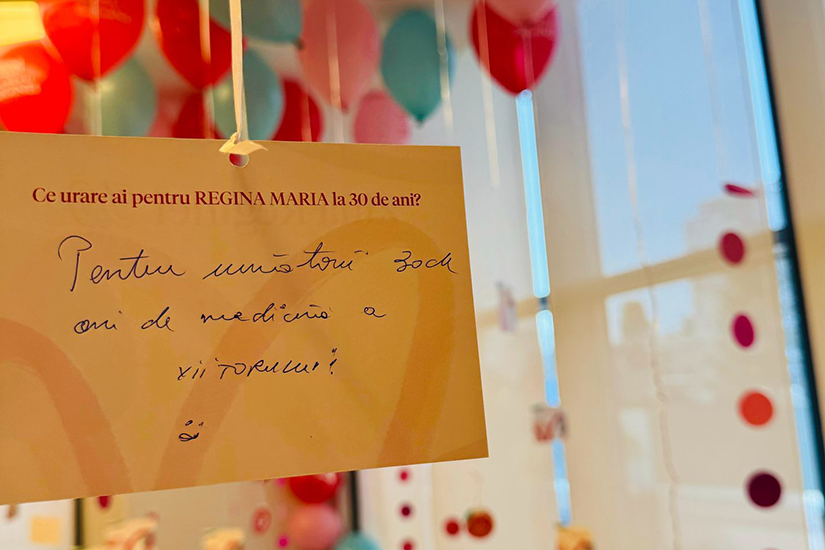 Ce urare ai pentru REGINA MARIA la 30 de ani?
Pentru următorii 30
ani de medicină a
viitorului!